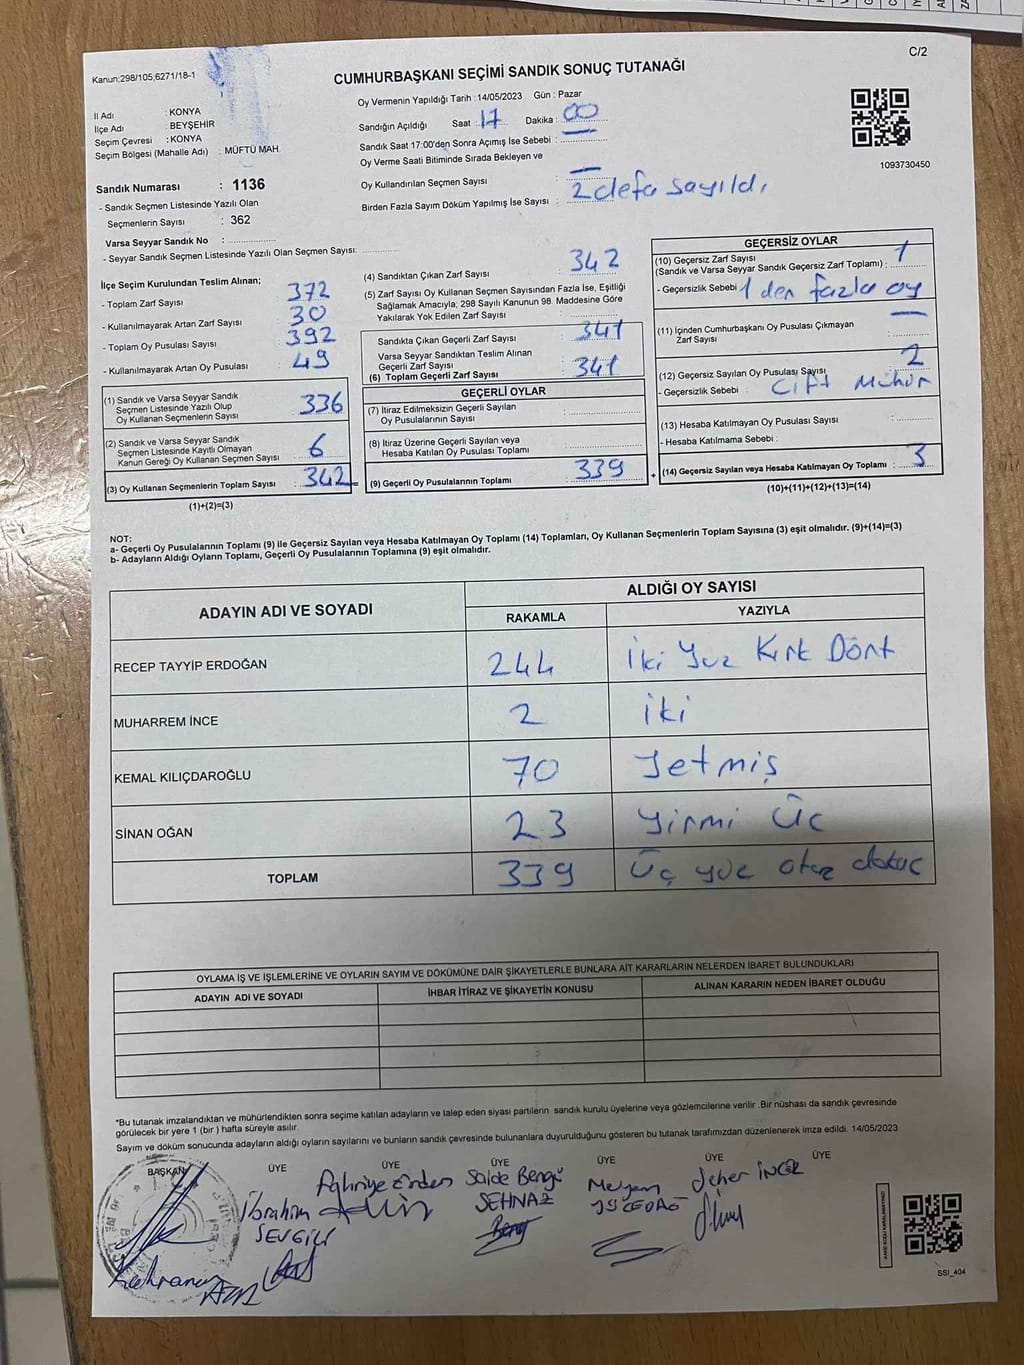 C/2
Kanun;298/105;6271/18-1
CUMHURBAŞKANI SEÇİMİ SANDIK SONUÇ TUTANAĞI
İl Adı : KONYA
İlçe Adı : BEYŞEHİR
Seçim Çevresi : KONYA
Seçim Bölgesi (Mahalle Adı) : MÜFTÜ MAH.
Oy Vermenin Yapıldığı Tarih :14/05/2023 Gün : Pazar
Sandığın Açıldığı Saat : 17 Dakika : 00
Sandık Saat 17:00'den Sonra Açımış İse Sebebi :
Oy Verme Saati Bitiminde Sırada Bekleyen ve
Oy Kullandırılan Seçmen Sayısı : —
Birden Fazla Sayım Döküm Yapılmış İse Sayısı : 2 defa sayıldı.
1093730450
Sandık Numarası : 1136
- Sandık Seçmen Listesinde Yazılı Olan
Seçmenlerin Sayısı : 362
Varsa Seyyar Sandık No :
- Seyyar Sandık Seçmen Listesinde Yazılı Olan Seçmen Sayısı:
İlçe Seçim Kurulundan Teslim Alınan;
- Toplam Zarf Sayısı : 372
- Kullanılmayarak Artan Zarf Sayısı : 30
- Toplam Oy Pusulası Sayısı : 392
- Kullanılmayarak Artan Oy Pusulası : 49
(1) Sandık ve Varsa Seyyar Sandık
Seçmen Listesinde Yazılı Olup
Oy Kullanan Seçmenlerin Sayısı : 336
(2) Sandık ve Varsa Seyyar Sandık
Seçmen Listesinde Kayıtlı Olmayan
Kanun Gereği Oy Kullanan Seçmen Sayısı : 6
(3) Oy Kullanan Seçmenlerin Toplam Sayısı : 342
(1)+(2)=(3)
(4) Sandıktan Çıkan Zarf Sayısı : 342
(5) Zarf Sayısı Oy Kullanan Seçmen Sayısından Fazla İse, Eşitliği
Sağlamak Amacıyla; 298 Sayılı Kanunun 98. Maddesine Göre
Yakılarak Yok Edilen Zarf Sayısı :
Sandıkta Çıkan Geçerli Zarf Sayısı : 341
Varsa Seyyar Sandıktan Teslim Alınan
Geçerli Zarf Sayısı :
(6) Toplam Geçerli Zarf Sayısı : 341
GEÇERLİ OYLAR
(7) İtiraz Edilmeksizin Geçerli Sayılan
Oy Pusulalarının Sayısı :
(8) İtiraz Üzerine Geçerli Sayılan veya
Hesaba Katılan Oy Pusulası Toplamı :
(9) Geçerli Oy Pusulalarının Toplamı : 339
+
GEÇERSİZ OYLAR
(10) Geçersiz Zarf Sayısı
(Sandık ve Varsa Seyyar Sandık Geçersiz Zarf Toplamı) : 1
- Geçersizlik Sebebi : 1 den fazla oy
(11) İçinden Cumhurbaşkanı Oy Pusulası Çıkmayan
Zarf Sayısı : —
(12) Geçersiz Sayılan Oy Pusulası Sayısı : 2
- Geçersizlik Sebebi : Çift Mühür
(13) Hesaba Katılmayan Oy Pusulası Sayısı :
- Hesaba Katılmama Sebebi :
(14) Geçersiz Sayılan veya Hesaba Katılmayan Oy Toplamı : 3
(10)+(11)+(12)+(13)=(14)
NOT:
a- Geçerli Oy Pusulalarının Toplamı (9) ile Geçersiz Sayılan veya Hesaba Katılmayan Oy Toplamı (14) Toplamları, Oy Kullanan Seçmenlerin Toplam Sayısına (3) eşit olmalıdır. (9)+(14)=(3)
b- Adayların Aldığı Oyların Toplamı, Geçerli Oy Pusulalarının Toplamına (9) eşit olmalıdır.
ADAYIN ADI VE SOYADI
ALDIĞI OY SAYISI
RAKAMLA YAZIYLA
RECEP TAYYİP ERDOĞAN 244 İki Yüz Kırk Dört
MUHARREM İNCE 2 İki
KEMAL KILIÇDAROĞLU 70 Yetmiş
SİNAN OĞAN 23 Yirmi Üç
TOPLAM 339 Üç yüz otuz dokuz
OYLAMA İŞ VE İŞLEMLERİNE VE OYLARIN SAYIM VE DÖKÜMÜNE DAİR ŞİKAYETLERLE BUNLARA AİT KARARLARIN NELERDEN İBARET BULUNDUKLARI
ADAYIN ADI VE SOYADI İHBAR İTİRAZ VE ŞİKAYETİN KONUSU ALINAN KARARIN NEDEN İBARET OLDUĞU
*Bu tutanak imzalandıktan ve mühürlendikten sonra seçime katılan adayların ve talep eden siyasi partilerin sandık kurulu üyelerine veya gözlemcilerine verilir .Bir nüshası da sandık çevresinde
görülecek bir yere 1 (bir ) hafta süreyle asılır.
Sayım ve döküm sonucunda adayların aldığı oyların sayılarını ve bunların sandık çevresinde bulunanlara duyurulduğunu gösteren bu tutanak tarafımızdan düzenlenerek imza edildi. 14/05/2023
BAŞKAN ÜYE ÜYE ÜYE ÜYE ÜYE ÜYE
İbrahim
SEVGİLİ
Fahriye Erden
Saide Bengü
SEHNAZ
Meryem
Seher İNCE
Kahraman
SSI_404